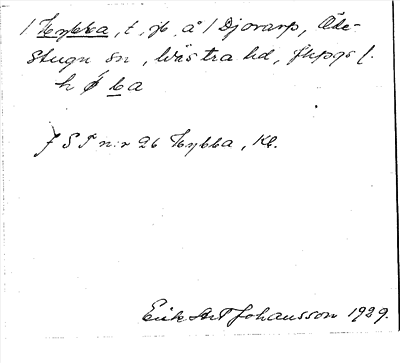 / Hykka, t. jb. å / Djorarp, Öde-
stugu sn, Västra hd, Jkpgs l.
h ǿ k a
J S T n:r 26 Hykka, Kl.
Erik Art Johansson 1929.